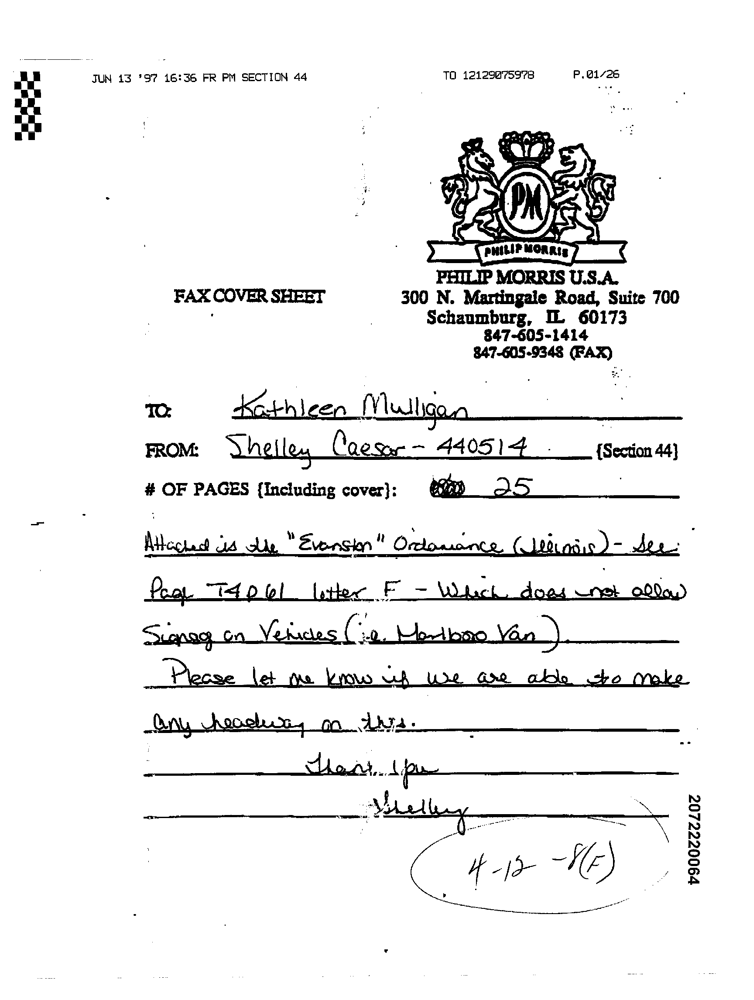 JUN 13 '97 16:36 FR PM SECTION 44 TO 12129075978 P.01/26
PM
PHILIP MORRIS
PHILIP MORRIS U.S.A.
FAX COVER SHEET
300 N. Martingale Road, Suite 700
Schaumburg, IL 60173
847-605-1414
847-605-9348 (FAX)
TO: Kathleen Mulligan
FROM: Shelley Caesar - 440514 {Section 44}
# OF PAGES {Including cover}: 25
Attached is the "Evanston" Ordaniance (Illinois) - See
Page T4P61 letter F - Which does not allow
Signag on Vehicles (i.e. Marlboro Van).
Please let me know if we are able to make
any headway on this.
Thank you
Shelley
4-12-8(F)
2072220064